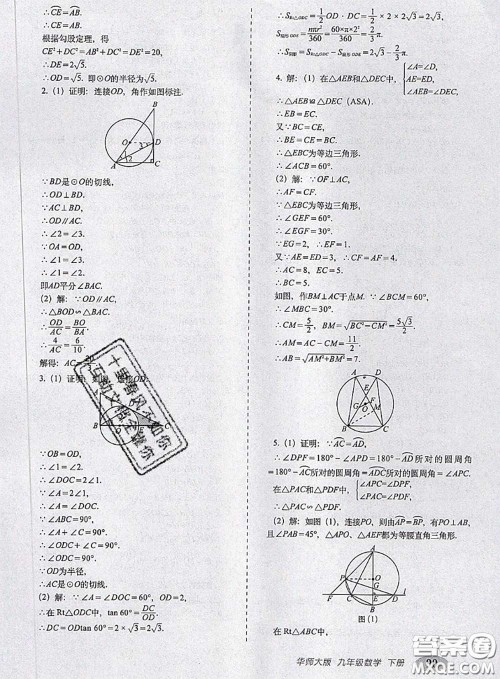 ∴CE=AB.
根据勾股定理,得
CE²+DC²=AB²+DC²=DE²=20,
∴DE=2√5.
∴OD=√5. 即⊙O的半径为√5.
2. (1) 证明: 连接OD, 角作如图标注.
B
O
D
A
C
∵BD是⊙O的切线,
∴OD⊥BD.
∵AC⊥BD,
∴OD∥AC.
∴∠2=∠3.
∵OA=OD,
∴∠1=∠3.
∴∠1=∠2.
即AD平分∠BAC.
(2) 解: ∵OD∥AC,
∴△BOD∽△BAC.
∴OD/AC=BO/BA.
∴4/AC=6/10.
解得: AC=20
3. (1) 证明: 如图, 连接OD.
十里春风不如你
互助文档全靠你
∵OB=OD,
∴∠DOC=2∠1.
∵∠A=2∠1,
∴∠A=∠DOC.
∵∠ABC=90°,
∴∠A+∠C=90°.
∴∠ODC+∠C=90°.
∴∠ODC=90°.
∴AC是⊙O的切线.
(2) 解: ∵∠A=∠DOC=60°, OD=2,
∴在Rt△ODC中, tan 60°=DC/OD.
∴DC=ODtan 60°=2×√3=2√3.
∴S Rt△ODC=1/2OD·DC=1/2×2×2√3=2√3.
∴S扇形ODE=nπr²/360=60×π×2²/360=2/3π.
∴S阴影=S Rt△ODC-S扇形ODE=2√3-2/3π.
4. 解: (1) 在△AEB和△DEC中, {∠A=∠D, AE=ED, ∠AEB=∠DEC,
∴△AEB≌△DEC (ASA).
∴EB=EC.
又∵BC=CE,
∴BE=CE=BC,
∴△EBC为等边三角形.
∴∠ACB=60°.
(2) 解: ∵OF⊥AC,
∴AF=CF.
∵△EBC为等边三角形,
∴∠GEF=60°.
∴∠EGF=30°.
∵EG=2, ∴EF=1.
又∵AE=ED=3, ∴CF=AF=4.
∴AC=8, EC=5.
∴BC=5.
如图, 作BM⊥AC于点M. ∵∠BCM=60°,
∴∠MBC=30°.
∴CM=5/2, BM=√(BC²-CM²)=5√3/2.
∴AM=AC-CM=11/2.
∴AB=√(AM²+BM²)=7.
5. (1) 证明: ∵AC=AD,
∴∠PDA=180°-∠APD=180°-AD所对的圆周角
=180°-AC所对的圆周角=ADC所对的圆周角=∠APC.
在△PAC和△PDA中, {∠APC=∠PDA, ∠PAC=∠PDA,
∴△PAC∽△PDA.
(2) 解: 如图 (1), 连接PO, 则由AP=BP, 有PO⊥AB, 且∠PAB=45°, △APO、△AEF都为等腰直角三角形.
A
P
O
C
E
D
B
图 (1)
在Rt△ABC中,
华师大版 九年级数学 下册
答案圈
MXQE.COM